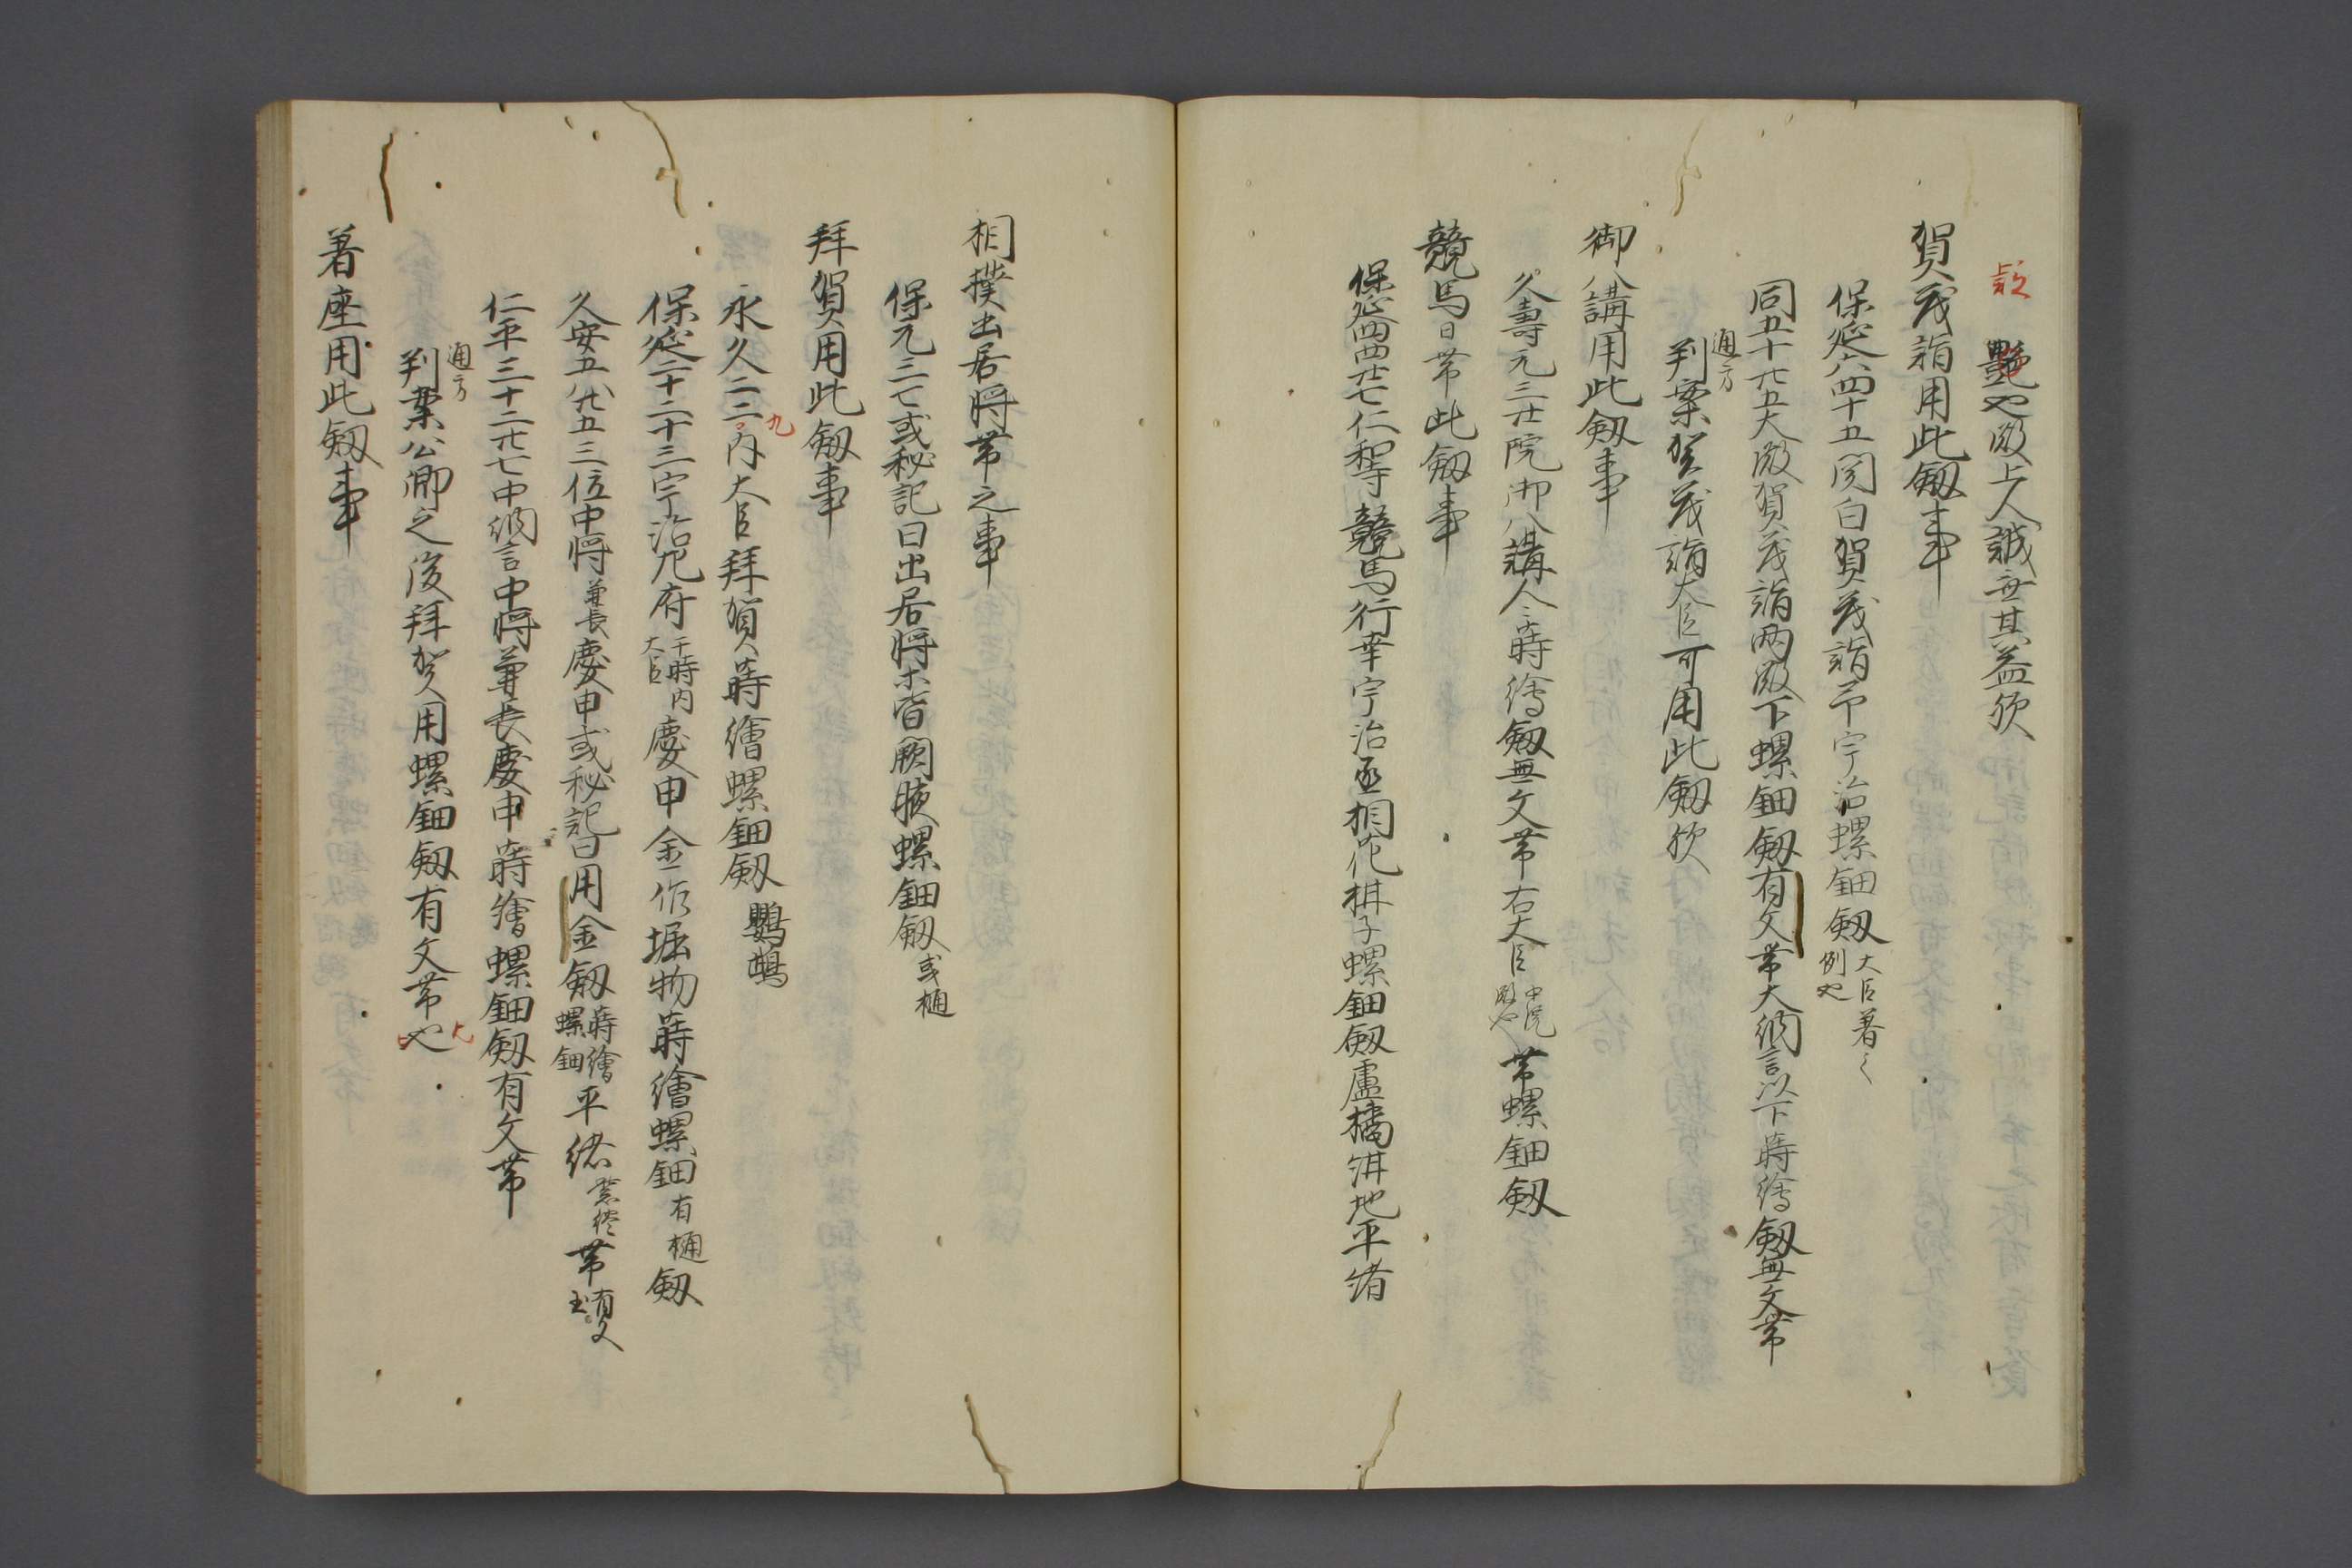 艶也殿上人誠無其益欤
賀茂詣用此剱事
保延六四十五関白賀茂詣予宇治螺鈿剱大臣著之例也
同五十廿五大殿賀茂詣両殿下螺鈿剱有文帯大納言以下蒔絵剱無文帯
通方
判案賀茂詣大臣可用此剱欤
御八講用此剱事
久壽元三廿院御八講人々蒔繪剱無文帯右大臣中院殿也帯螺鈿剱
競馬日帯此剱事
保延四四廿七仁和寺競馬行幸宇治丞相花拱子螺鈿剱盧橘汫地平緒
相撲出居将帯之事
保元三七或秘記曰出居将示皆闕腋螺鈿剱或樋
拜賀用此剱事
永久二二九内大臣拜賀蒔繪螺鈿剱鸚鵡
保延二十二十三宇治左府于時内大臣慶申金作堀物蒔繪螺鈿有樋剱
久安五八廿五三位中将兼長慶申或秘記曰用金剱蒔繪螺鈿平緒紫終帯有文玉
仁平三十二廿七中納言中将兼長慶申蒔繪螺鈿剱有文帯
通方
判案公卿之後拜賀用螺鈿剱有文帯也
著座用此剱事